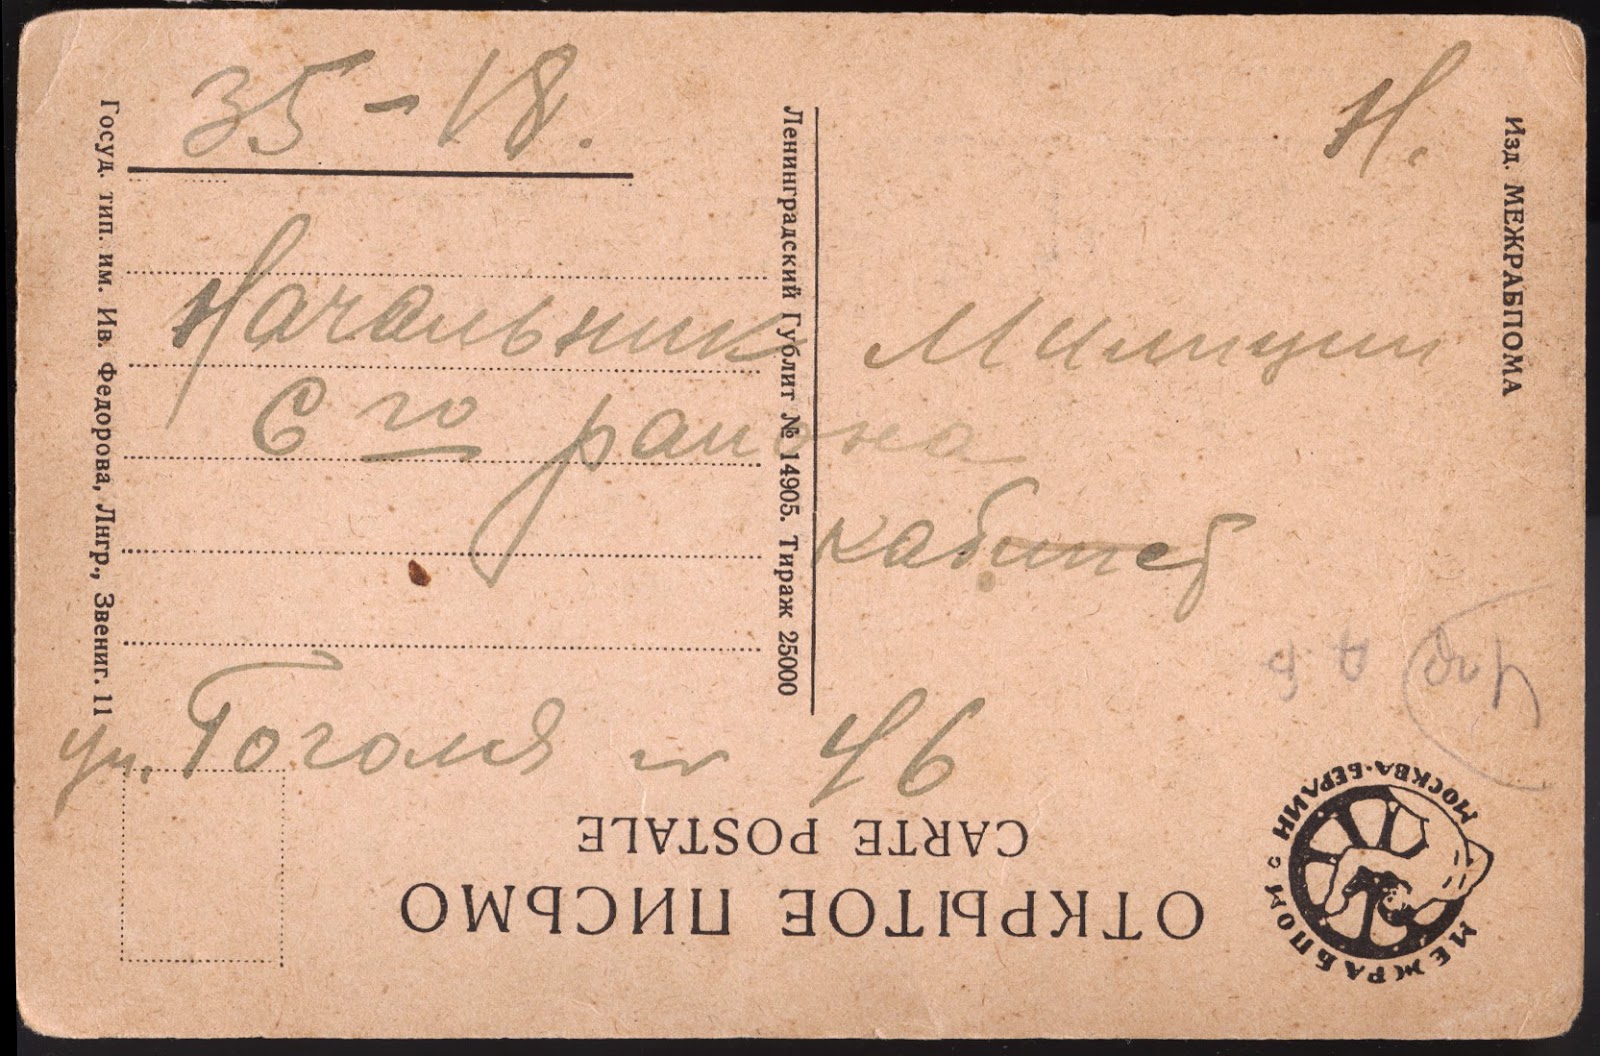 35-18.
Н.
Начальник Милиции
6го района
кабинет
ул. Гоголя № 46
ОТКРЫТОЕ ПИСЬМО
CARTE POSTALE
МЕЖРАБПОМ МОСКВА-БЕРЛИН
Изд. МЕЖРАБПОМА
Ленинградский Гублит № 14905. Тираж 25000
Госуд. тип. им. Ив. Федорова, Лнгр., Звениг. 11